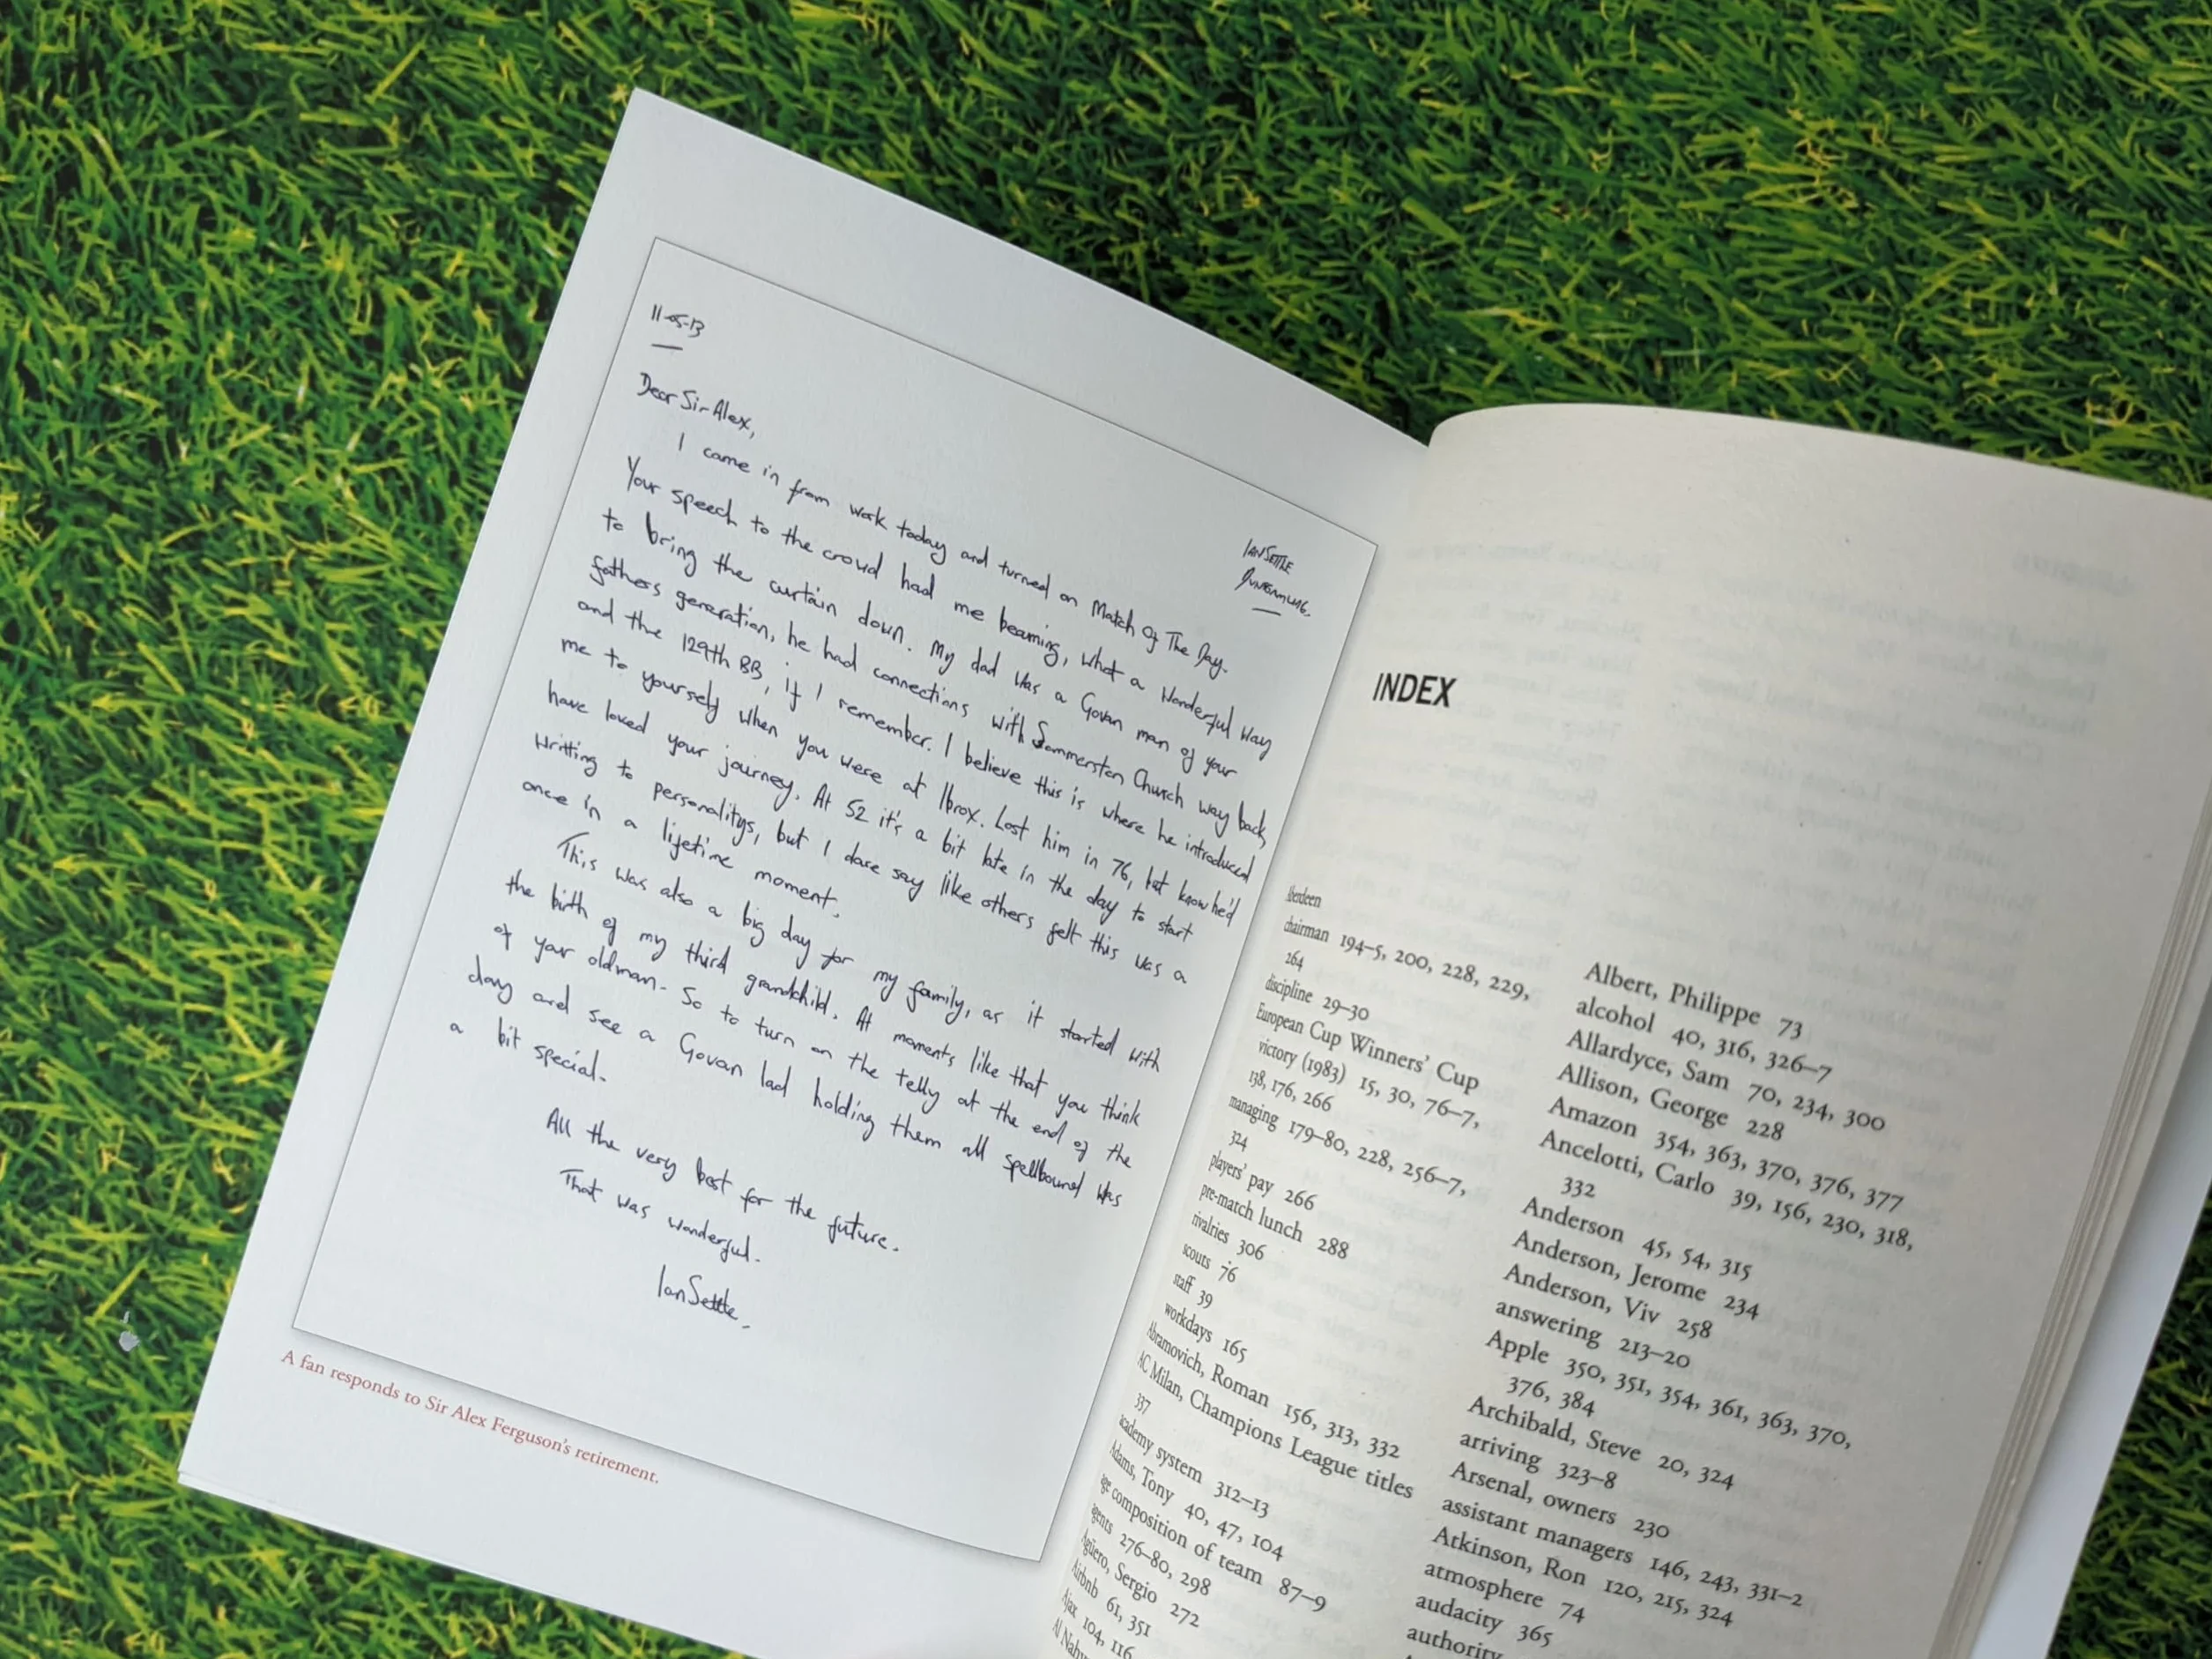 11-05-13
IAN SETTLE
DUNFERMLINE.
Dear Sir Alex,
I came in from work today and turned on Match Of The Day.
Your speech to the crowd had me beaming, what a wonderful way
to bring the curtain down. My dad was a Govan man of your
fathers generation, he had connections with Sommerston Church way back,
and the 129th BB, if I remember. I believe this is where he introduced
me to yourself when you were at Ibrox. Lost him in 76, but know he'd
have loved your journey. At 52 it's a bit late in the day to start
writting to personalitys, but I dare say like others felt this was a
once in a lifetime moment.
This was also a big day for my family, as it started with
the birth of my third grandchild. At moments like that you think
of your oldman. So to turn on the telly at the end of the
day and see a Govan lad holding them all spellbound was
a bit special.
All the very best for the future.
That was wonderful.
Ian Settle.
A fan responds to Sir Alex Ferguson's retirement.
INDEX
Aberdeen
chairman 194–5, 200, 228, 229,
264
discipline 29–30
European Cup Winners' Cup
victory (1983) 15, 30, 76–7,
138, 176, 266
managing 179–80, 228, 256–7,
324
players' pay 266
pre-match lunch 288
rivalries 306
scouts 76
staff 39
workdays 165
Abramovich, Roman 156, 313, 332
AC Milan, Champions League titles
337
academy system 312–13
Adams, Tony 40, 47, 104
age composition of team 87–9
agents 276–80, 298
Agüero, Sergio 272
Airbnb 61, 351
Ajax 104, 116
Al
Albert, Philippe 73
alcohol 40, 316, 326–7
Allardyce, Sam 70, 234, 300
Allison, George 228
Amazon 354, 363, 370, 376, 377
Ancelotti, Carlo 39, 156, 230, 318,
332
Anderson 45, 54, 315
Anderson, Jerome 234
Anderson, Viv 258
answering 213–20
Apple 350, 351, 354, 361, 363, 370,
376, 384
Archibald, Steve 20, 324
arriving 323–8
Arsenal, owners 230
assistant managers 146, 243, 331–2
Atkinson, Ron 120, 215, 324
atmosphere 74
audacity 365
authority